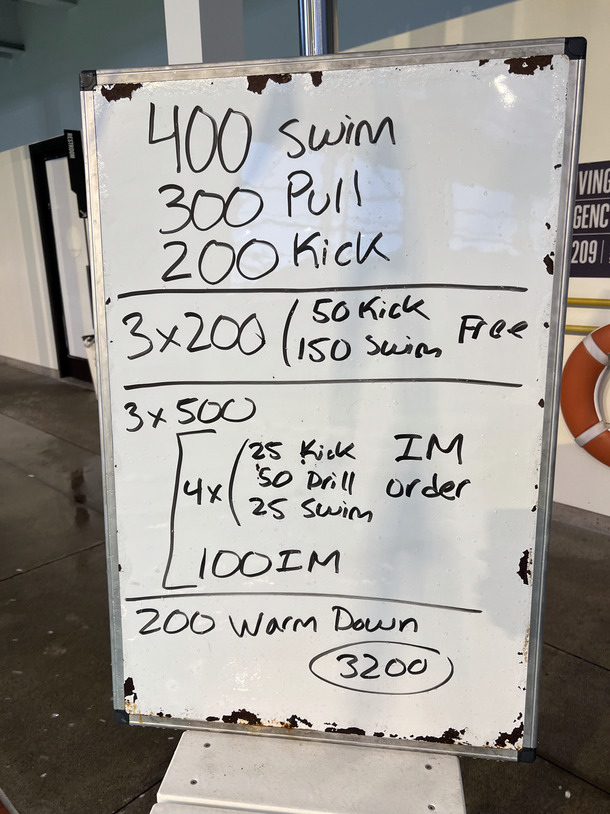 400 Swim
300 Pull
200 Kick
3x200 (50 Kick
150 Swim Free
3x500
4x (25 Kick IM
50 Drill order
25 Swim
100 IM
200 Warm Down
3200
RESTROOM
VING
GENC
209